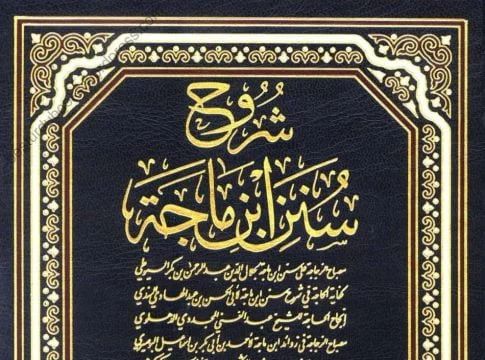 شُرُوح
سُنَنِ ابْنِ مَاجَة
مصباح الزجاجة على سنن ابن ماجة لجلال الدين عبد الرحمن بن بكر السيوطي
كفاية الحاجة في شرح سنن ابن ماجة لأبي الحسن بن عبد الهادي السندي
إنجاح الحاجة للشيخ عبد الغني المجددي الدهلوي
مصباح الزجاجة في زوائد ابن ماجة لأحمد بن أبي بكر بن إسماعيل البوصيري